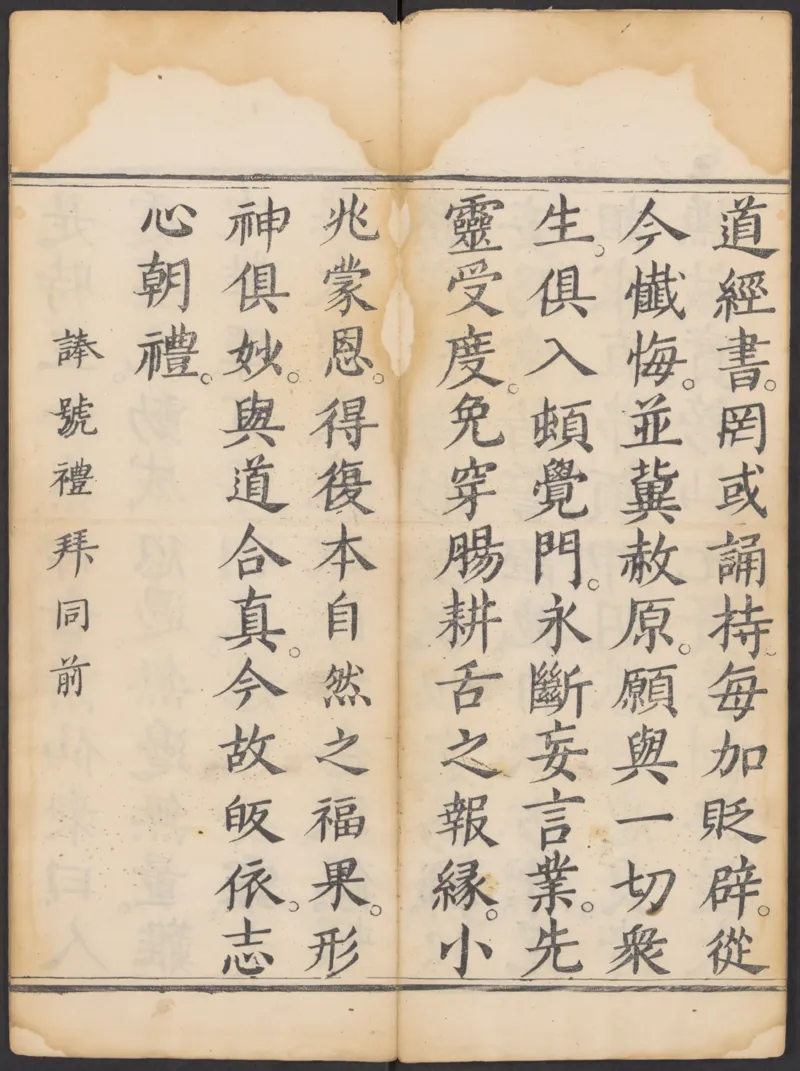 道經書。罔或誦持。每加貶辟。從
今懺悔。並兾赦原。願與一切衆
生。俱入頓覺門。永斷妄言業。先
靈受度。免穿腸耕舌之報縁。小
兆蒙恩。得復本自然之福果。形
神俱妙。與道合真。今故皈依。志
心朝禮。
諱號禮拜同前